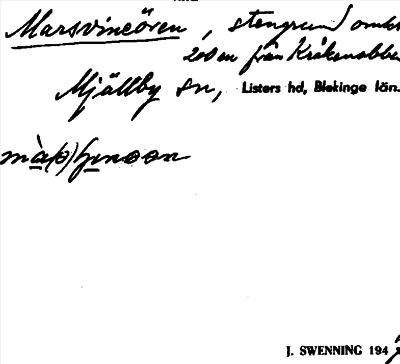 Marsvineören, stengrund omkr
200 m från Kråkenabben
Mjällby sn, Listers hd, Blekinge län.
J. SWENNING 194